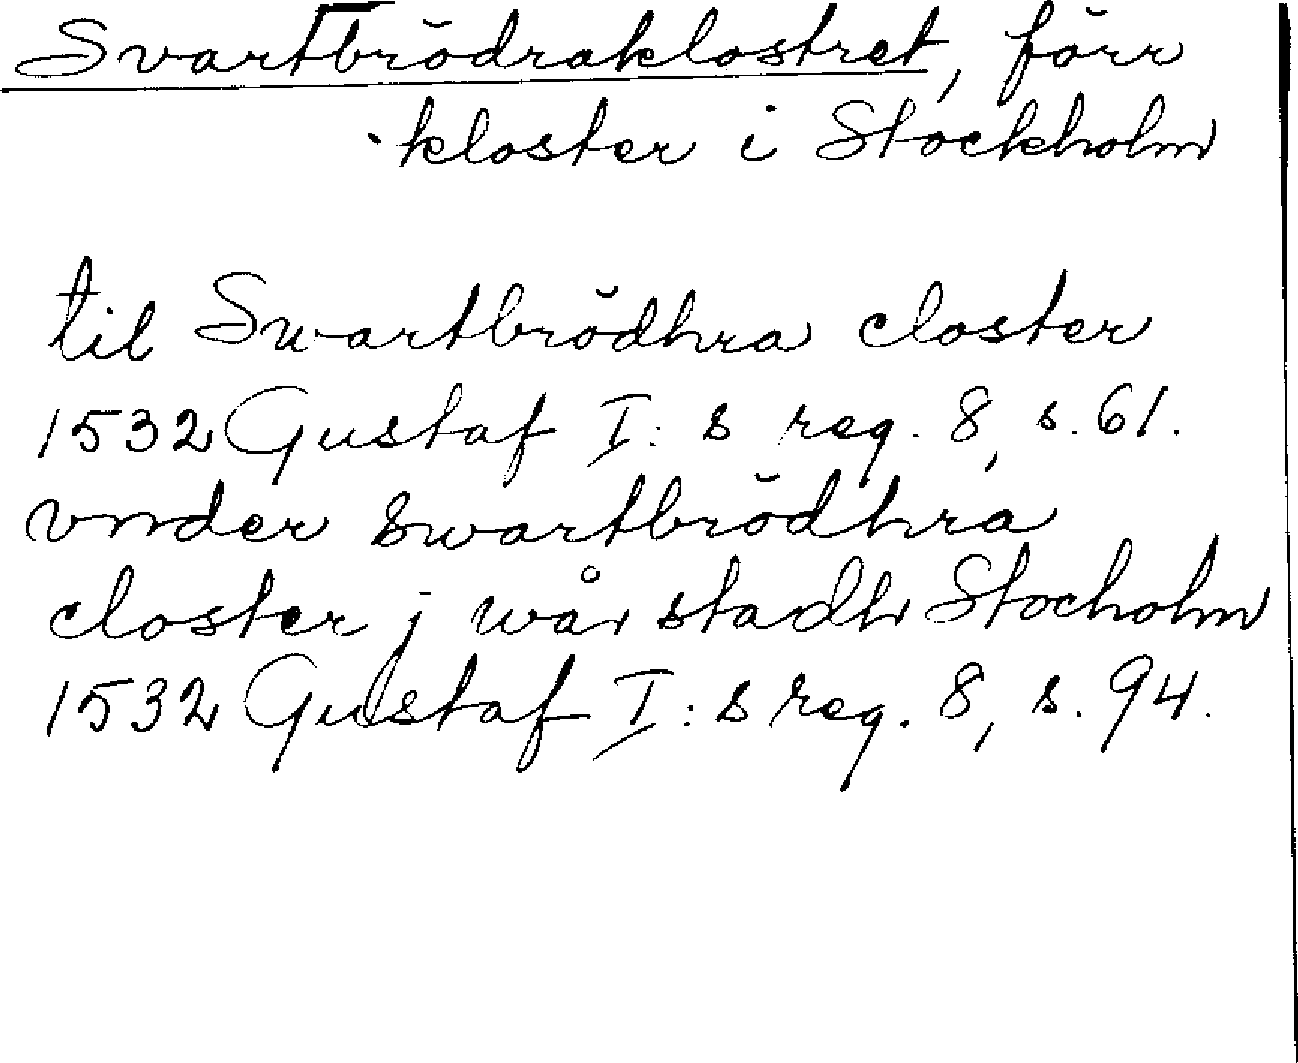 Svartbrödraklostret, förr
kloster i Stockholm
til Swartbrödhra closter
1532 Gustaf I:s reg. 8, s. 61.
vnder swartbrödhra
closter j wår stadh Stocholm
1532 Gustaf I:s reg. 8, s. 94.